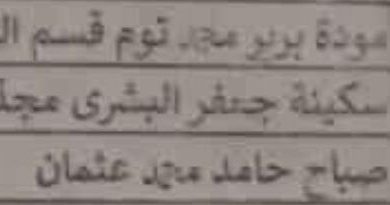 مودة برير محمد توم قسم ال
سكينة جعفر البشرى عجد
صباح حامد محمد عثمان